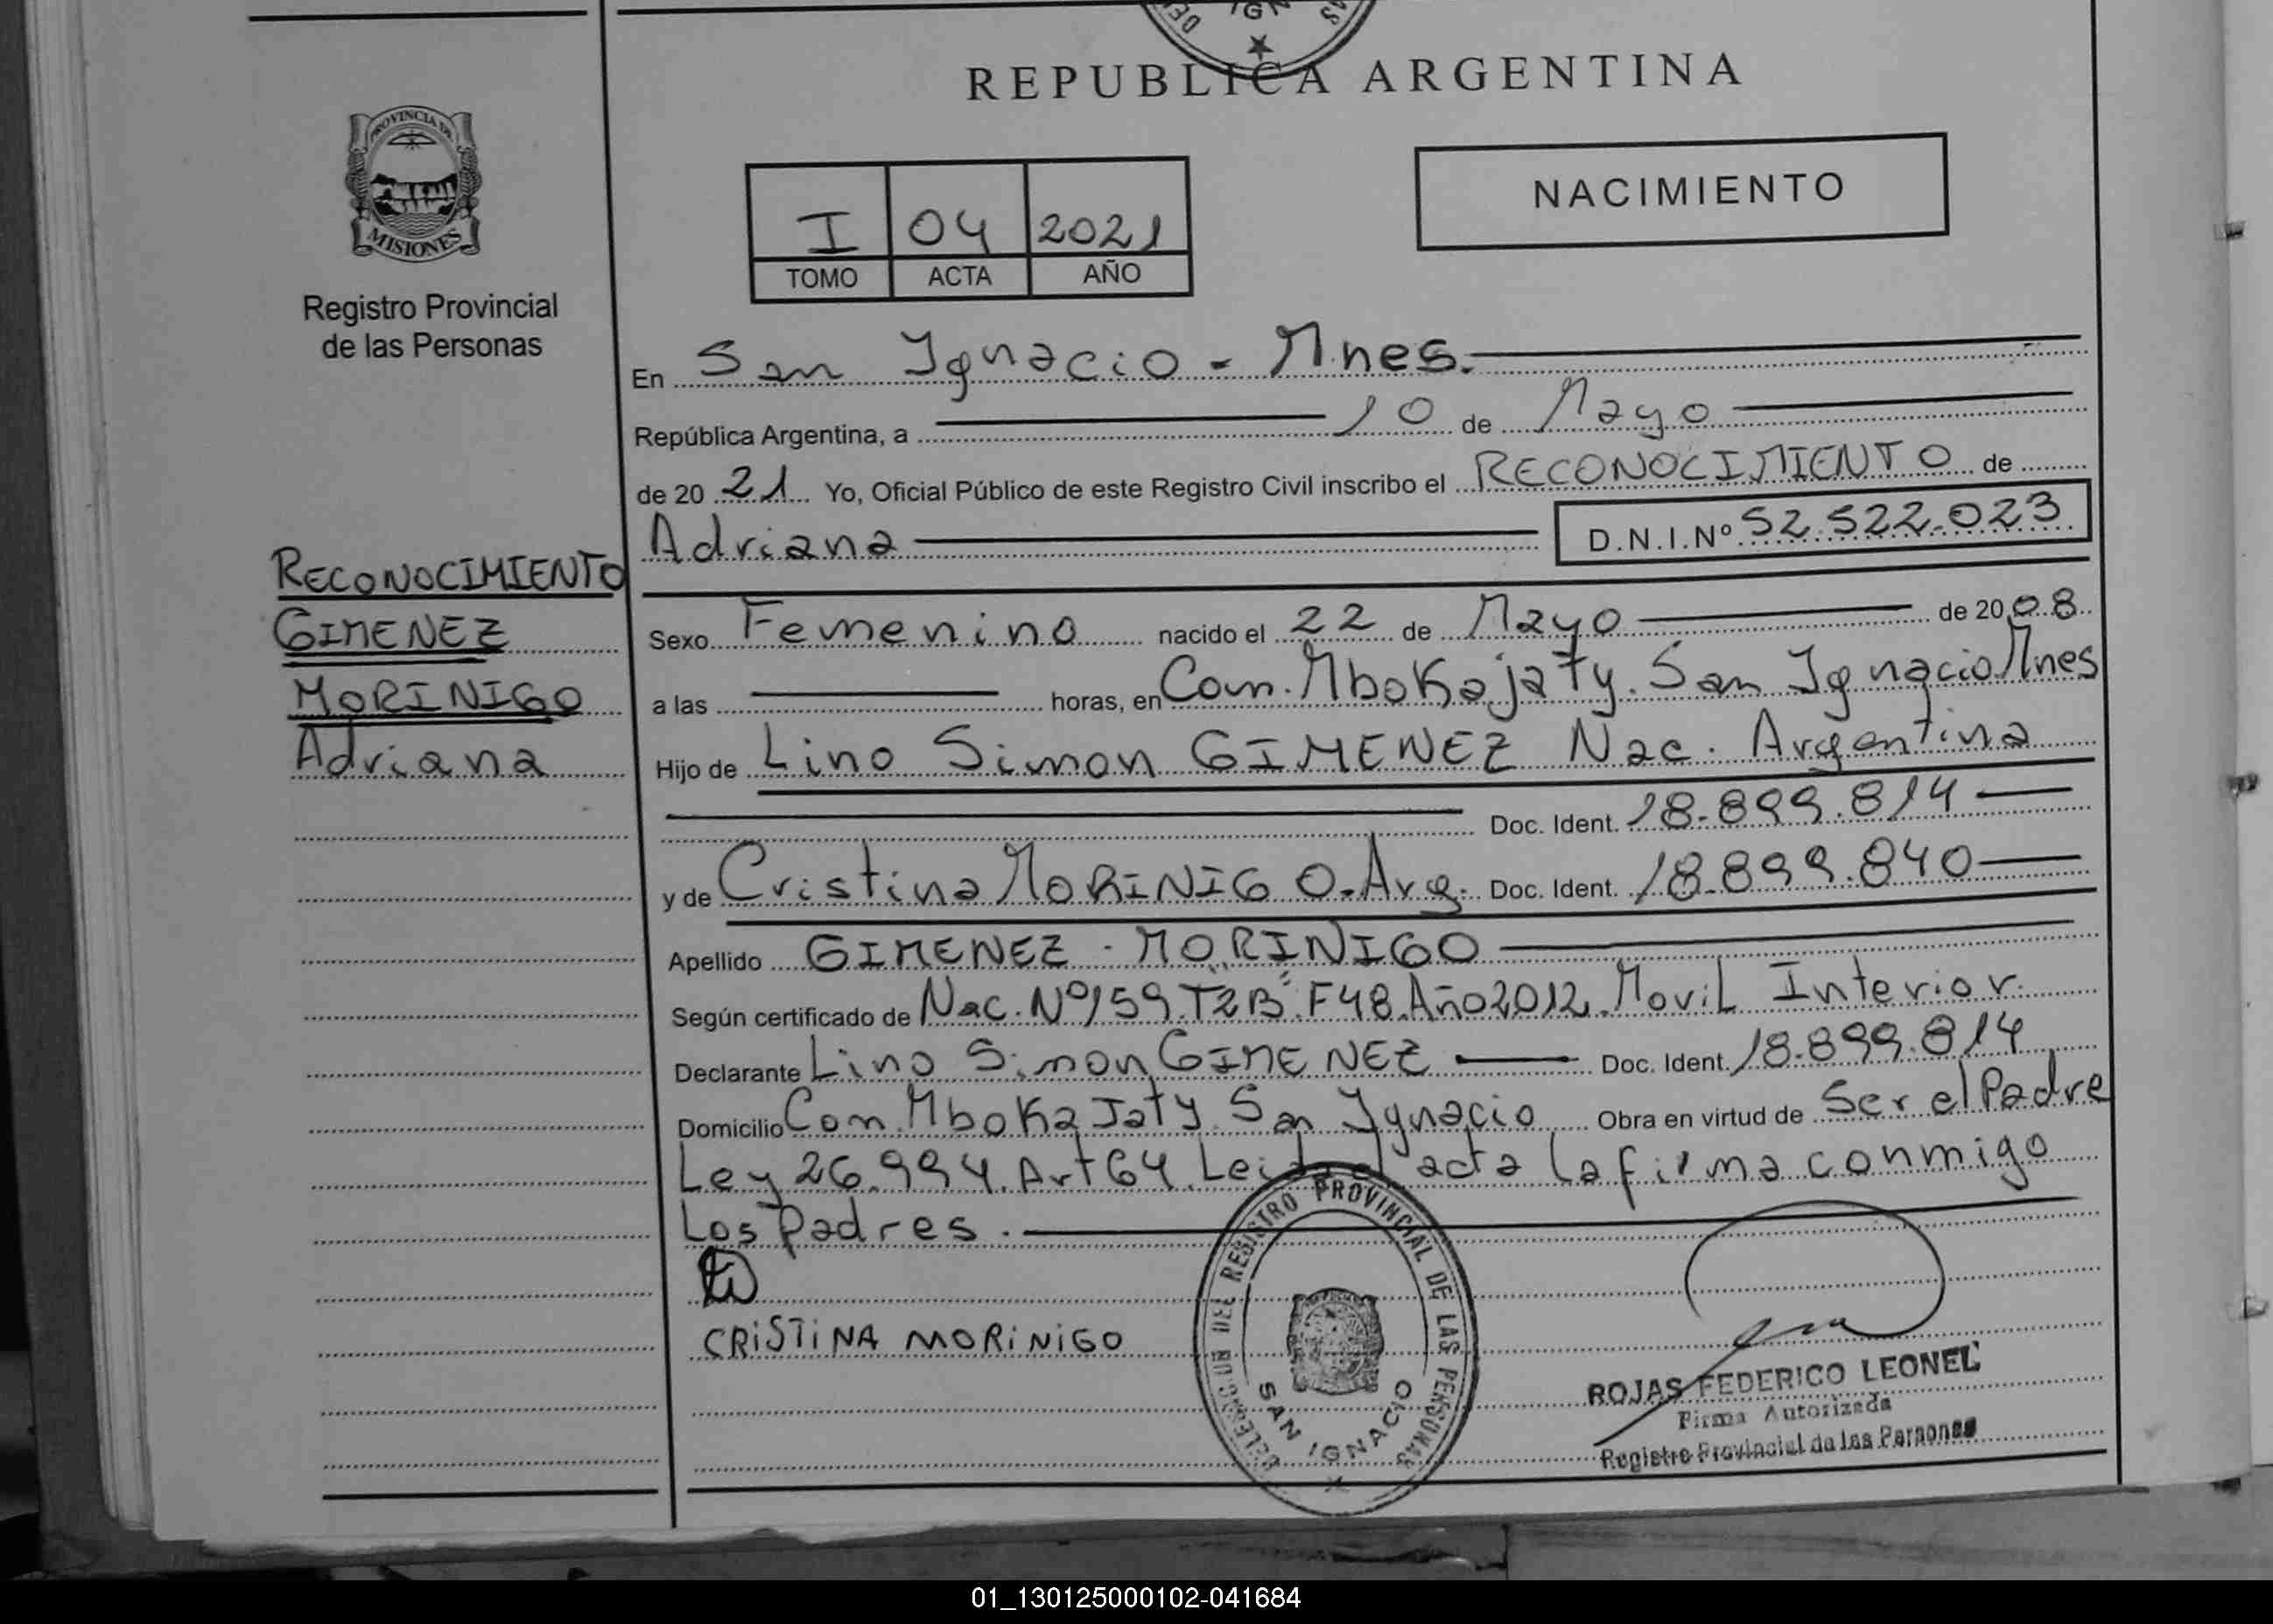 REPUBLICA ARGENTINA
PROVINCIA DE
MISIONES
Registro Provincial
de las Personas
NACIMIENTO
I 04 2021
TOMO ACTA AÑO
En San Ignacio - Mnes.
República Argentina, a 10 de Mayo
de 20 21 Yo, Oficial Público de este Registro Civil inscribo el RECONOCIMIENTO de
Adriana D.N.I.Nº 52.522.023
RECONOCIMIENTO
GIMENEZ
MORINIGO
Adriana
Sexo Femenino nacido el 22 de Mayo de 20 08
a las horas, en Com. Mbokajaty. San Ignacio Mnes
Hijo de Lino Simon GIMENEZ Nac. Argentina
Doc. Ident. 18.899.814
y de Cristina MORINIGO. Arg. Doc. Ident. 18.899.840
Apellido GIMENEZ - MORINIGO
Según certificado de Nac. Nº159.T2B.F48.Año2012.Movil Interior.
Declarante Lino Simon GIMENEZ Doc. Ident. 18.899.814
Domicilio Com. Mboka Jaty. San Ignacio Obra en virtud de Ser el Padre
Ley 26.994. Art 64. Leida el acta la firma conmigo
Los Padres.
CRISTINA MORINIGO
DELEGACION DEL REGISTRO PROVINCIAL DE LAS PERSONAS
SAN IGNACIO
ROJAS FEDERICO LEONEL
Firma Autorizada
Registro Provincial de las Personas
01_130125000102-041684